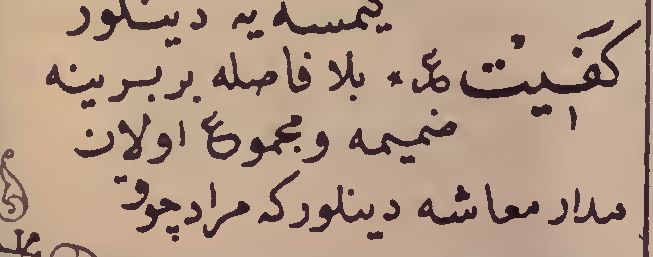 كيمسه يه دينلور
كَفِيت ع * بلا فاصله بر برينه
ضميمه و مجموع اولان
مدار معاشه دينلور كه مراد چوق